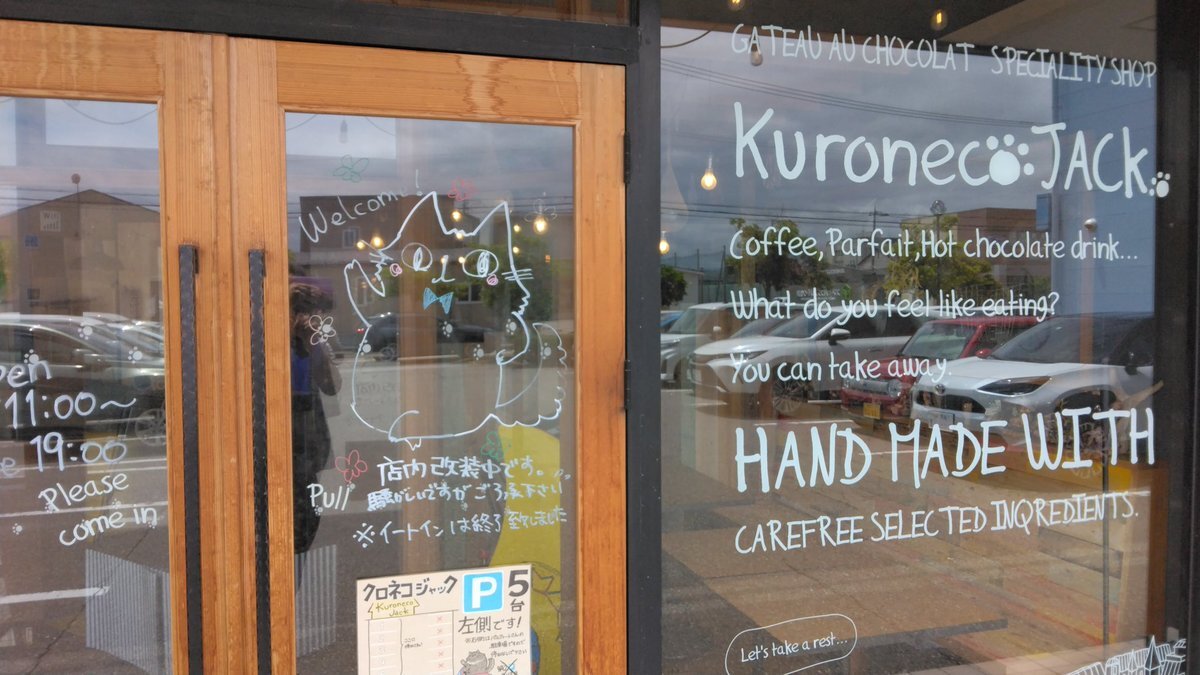 GATEAU AU CHOCOLAT SPECIALITY SHOP
Kuroneco JACK
Coffee, Parfait, Hot chocolate drink...
What do you feel like eating?
You can take away.
HAND MADE WITH
CAREFREE SELECTED INQREDIENTS.
Let's take a rest...
Welcome!
Pull
店内改装中です。
騒がしいですがご了承下さい。
※イートインは終了致しました
pen
11:00～
19:00
Please
come in
クロネコジャック
P 5台
Kuroneco
Jack
左側です!